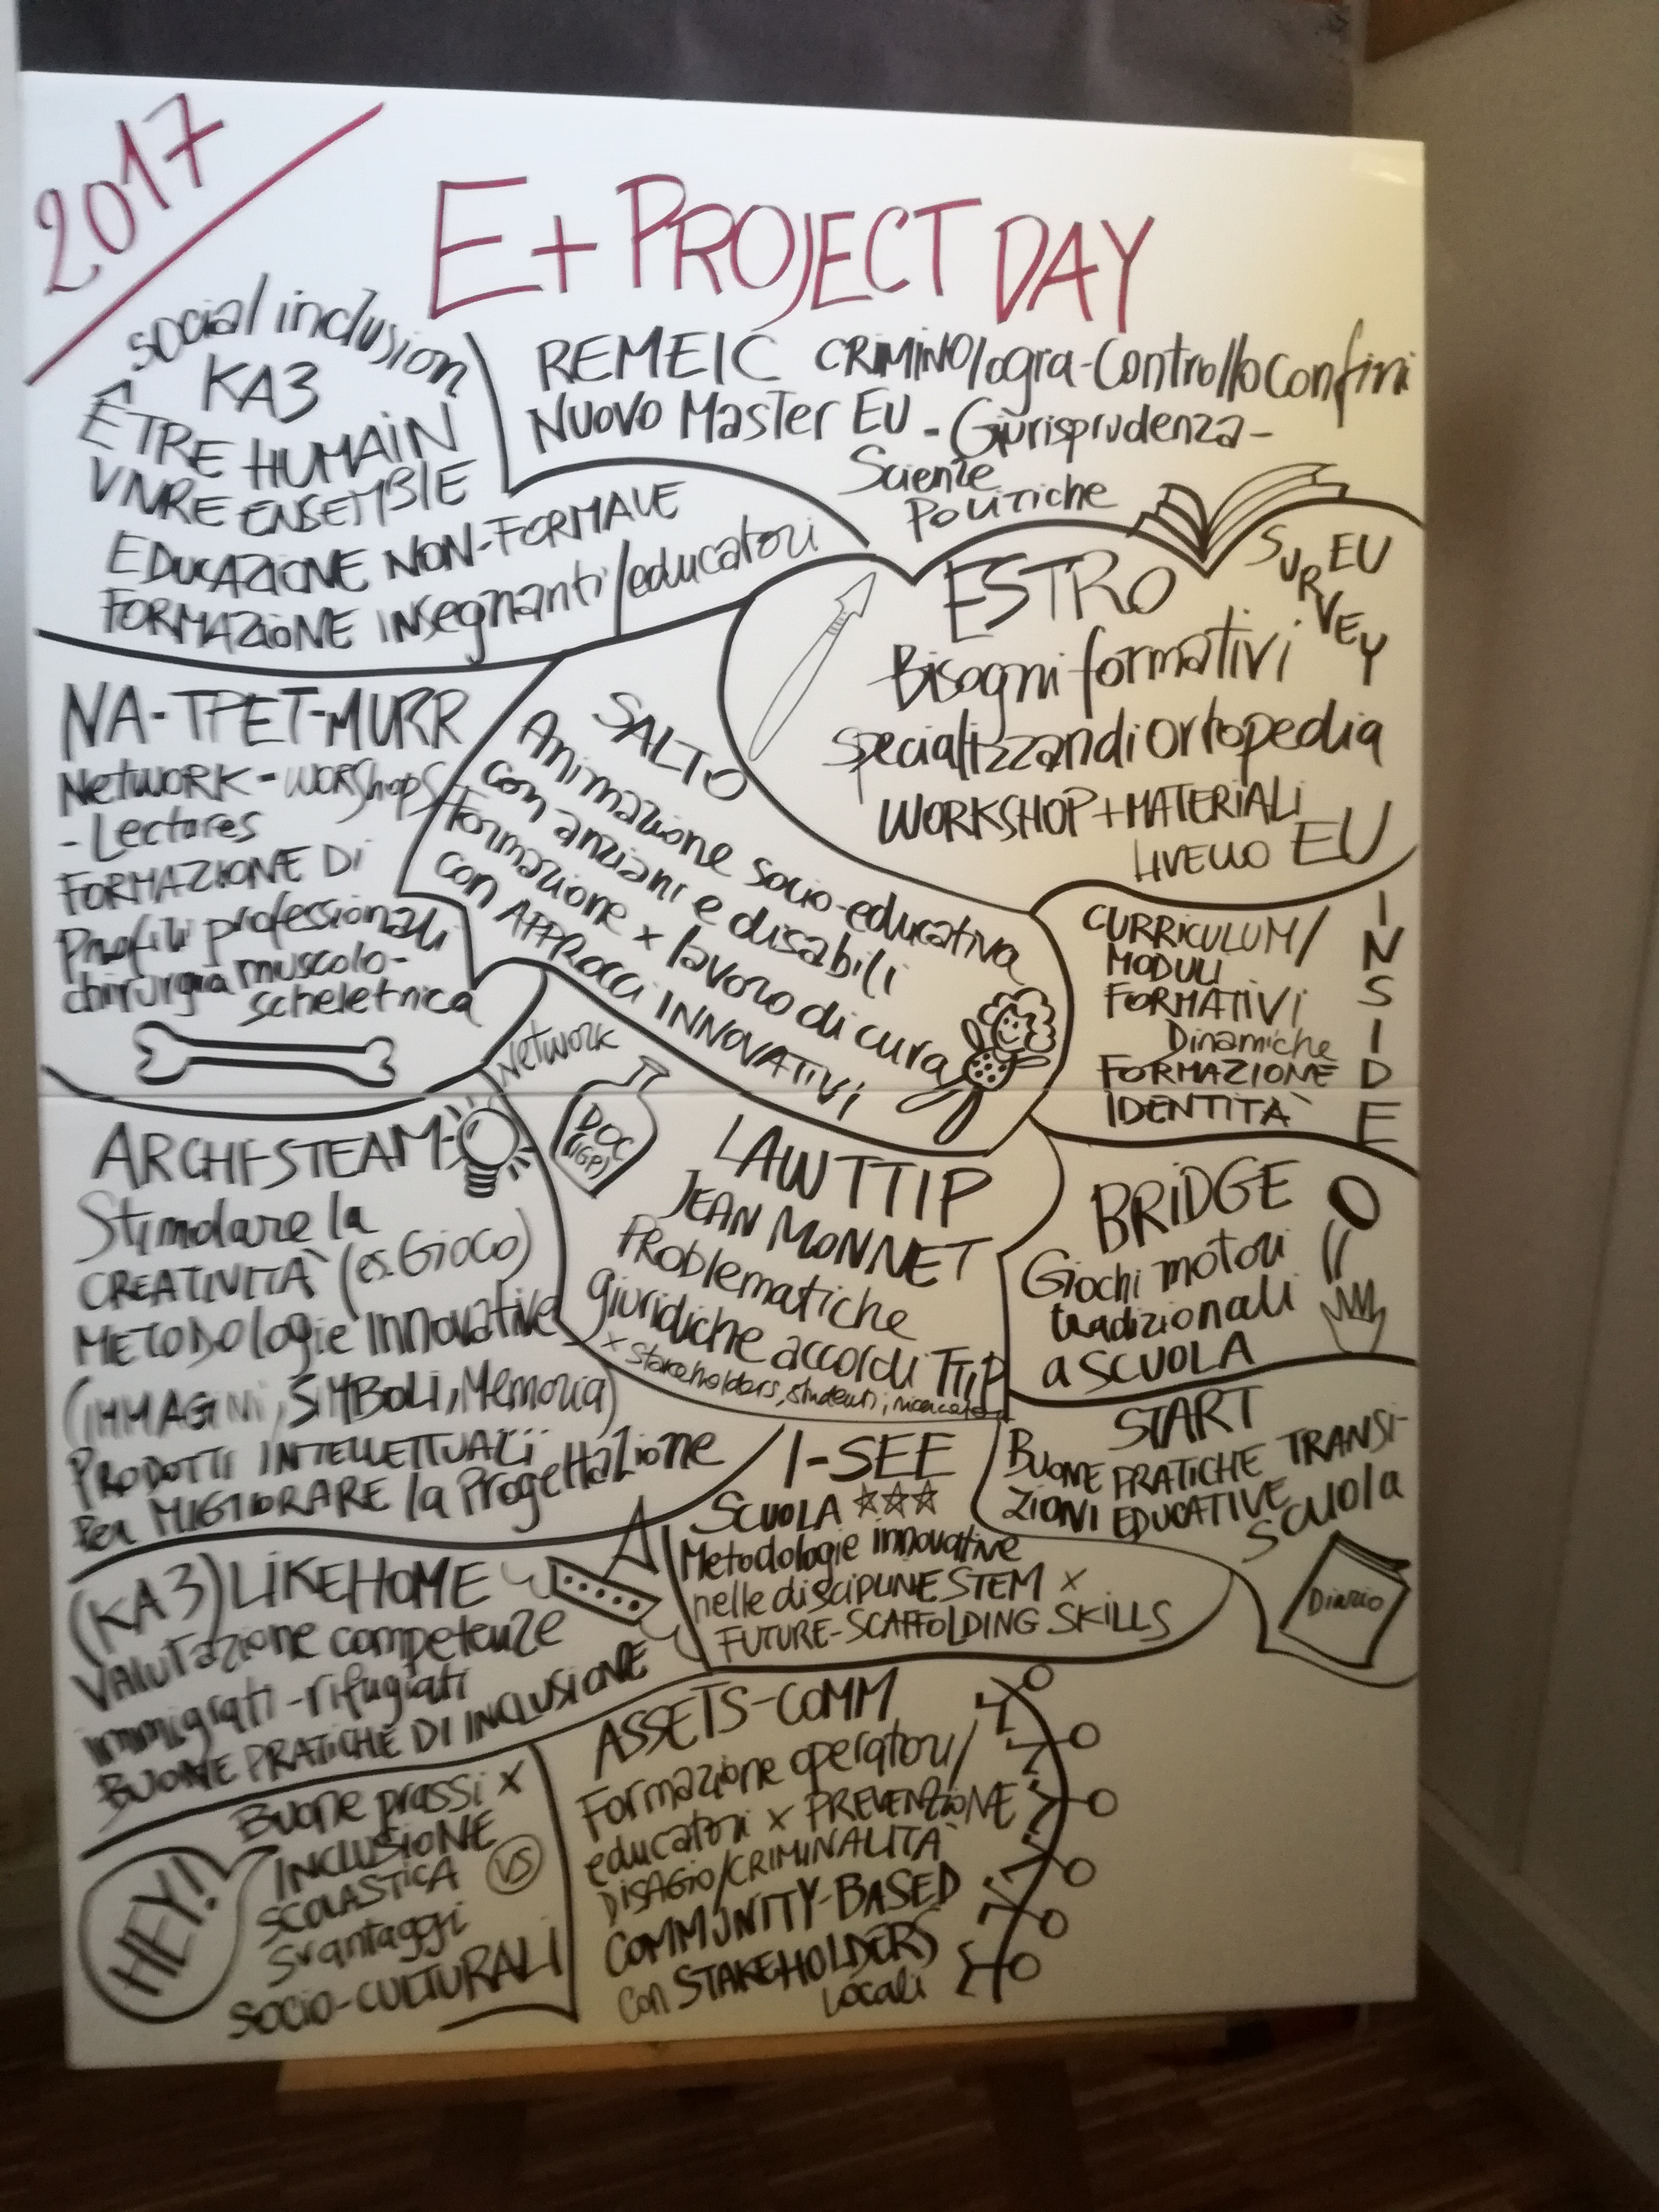 2017
E+ PROJECT DAY
social inclusion
KA3
ÊTRE HUMAIN
VIVRE ENSEMBLE
EDUCAZIONE NON-FORMALE
FORMAZIONE insegnanti/educatori
REMEIC CRIMINOlogia-Controllo Confini
NUOVO Master EU - Giurisprudenza-
Scienze
POLITICHE
ESTRO
EU
SURVEY
Bisogni formativi
specializzandi ortopedia
WORKSHOP+MATERIALI
LIVELLO EU
NA-TPET-MURR
NETWORK-WORSHOPS
- Lectures
FORMAZIONE DI
Profili professionali
chirurgia muscolo-
scheletrica
SALTO
Animazione socio-educativa
con anziani e disabili
Formazione x lavoro di cura
con APPROCCI INNOVATIVI
INSIDE
CURRICULUM/
MODULI
FORMATIVI
Dinamiche
FORMAZIONE
IDENTITÀ
Network
DOC
IGP
LAWTTIP
JEAN MONNET
PRoblematiche
giuridiche accordi TTIP
x stakeholders, studenti,
ARCHI-STEAM
Stimolare la
CREATIVITÀ (es. GIOCO)
METODOlogie innovative
(IMMAGINI, SIMBOLI, Memoria)
PRODOTTI INTELLETTUALI
Per MIGLIORARE la Progettazione
BRIDGE
Giochi motori
tradizionali
a SCUOLA
START
BUONE PRATICHE TRANSI-
ZIONI EDUCATIVE
scuola
Diario
I-SEE
SCUOLA
Metodologie innovative
nelle discipline STEM x
FUTURE-SCAFFOLDING SKILLS
(KA3) LIKEHOME
Valutazione competenze
immigrati-rifugiati
BUONE PRATICHE DI INCLUSIONE
HEY!
Buone prassi x
INCLUSIONE
SCOLASTICA VS
Svantaggi
SOCIO-CULTURALI
ASSETS-COMM
Formazione operatori/
educatori x PREVENZIONE
DISAGIO/CRIMINALITÀ
COMMUNITY-BASED
con STAKEHOLDERS
Locali